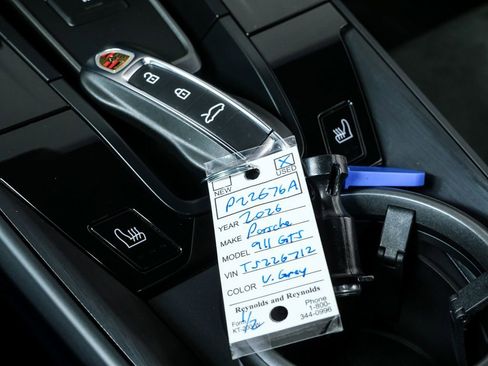 NEW
X
USED
P22676A
YEAR 2026
MAKE Porsche
MODEL 911 GTS
VIN TS226712
COLOR V. Grey
Reynolds and Reynolds
Phone
1-800-
344-0996
1/2